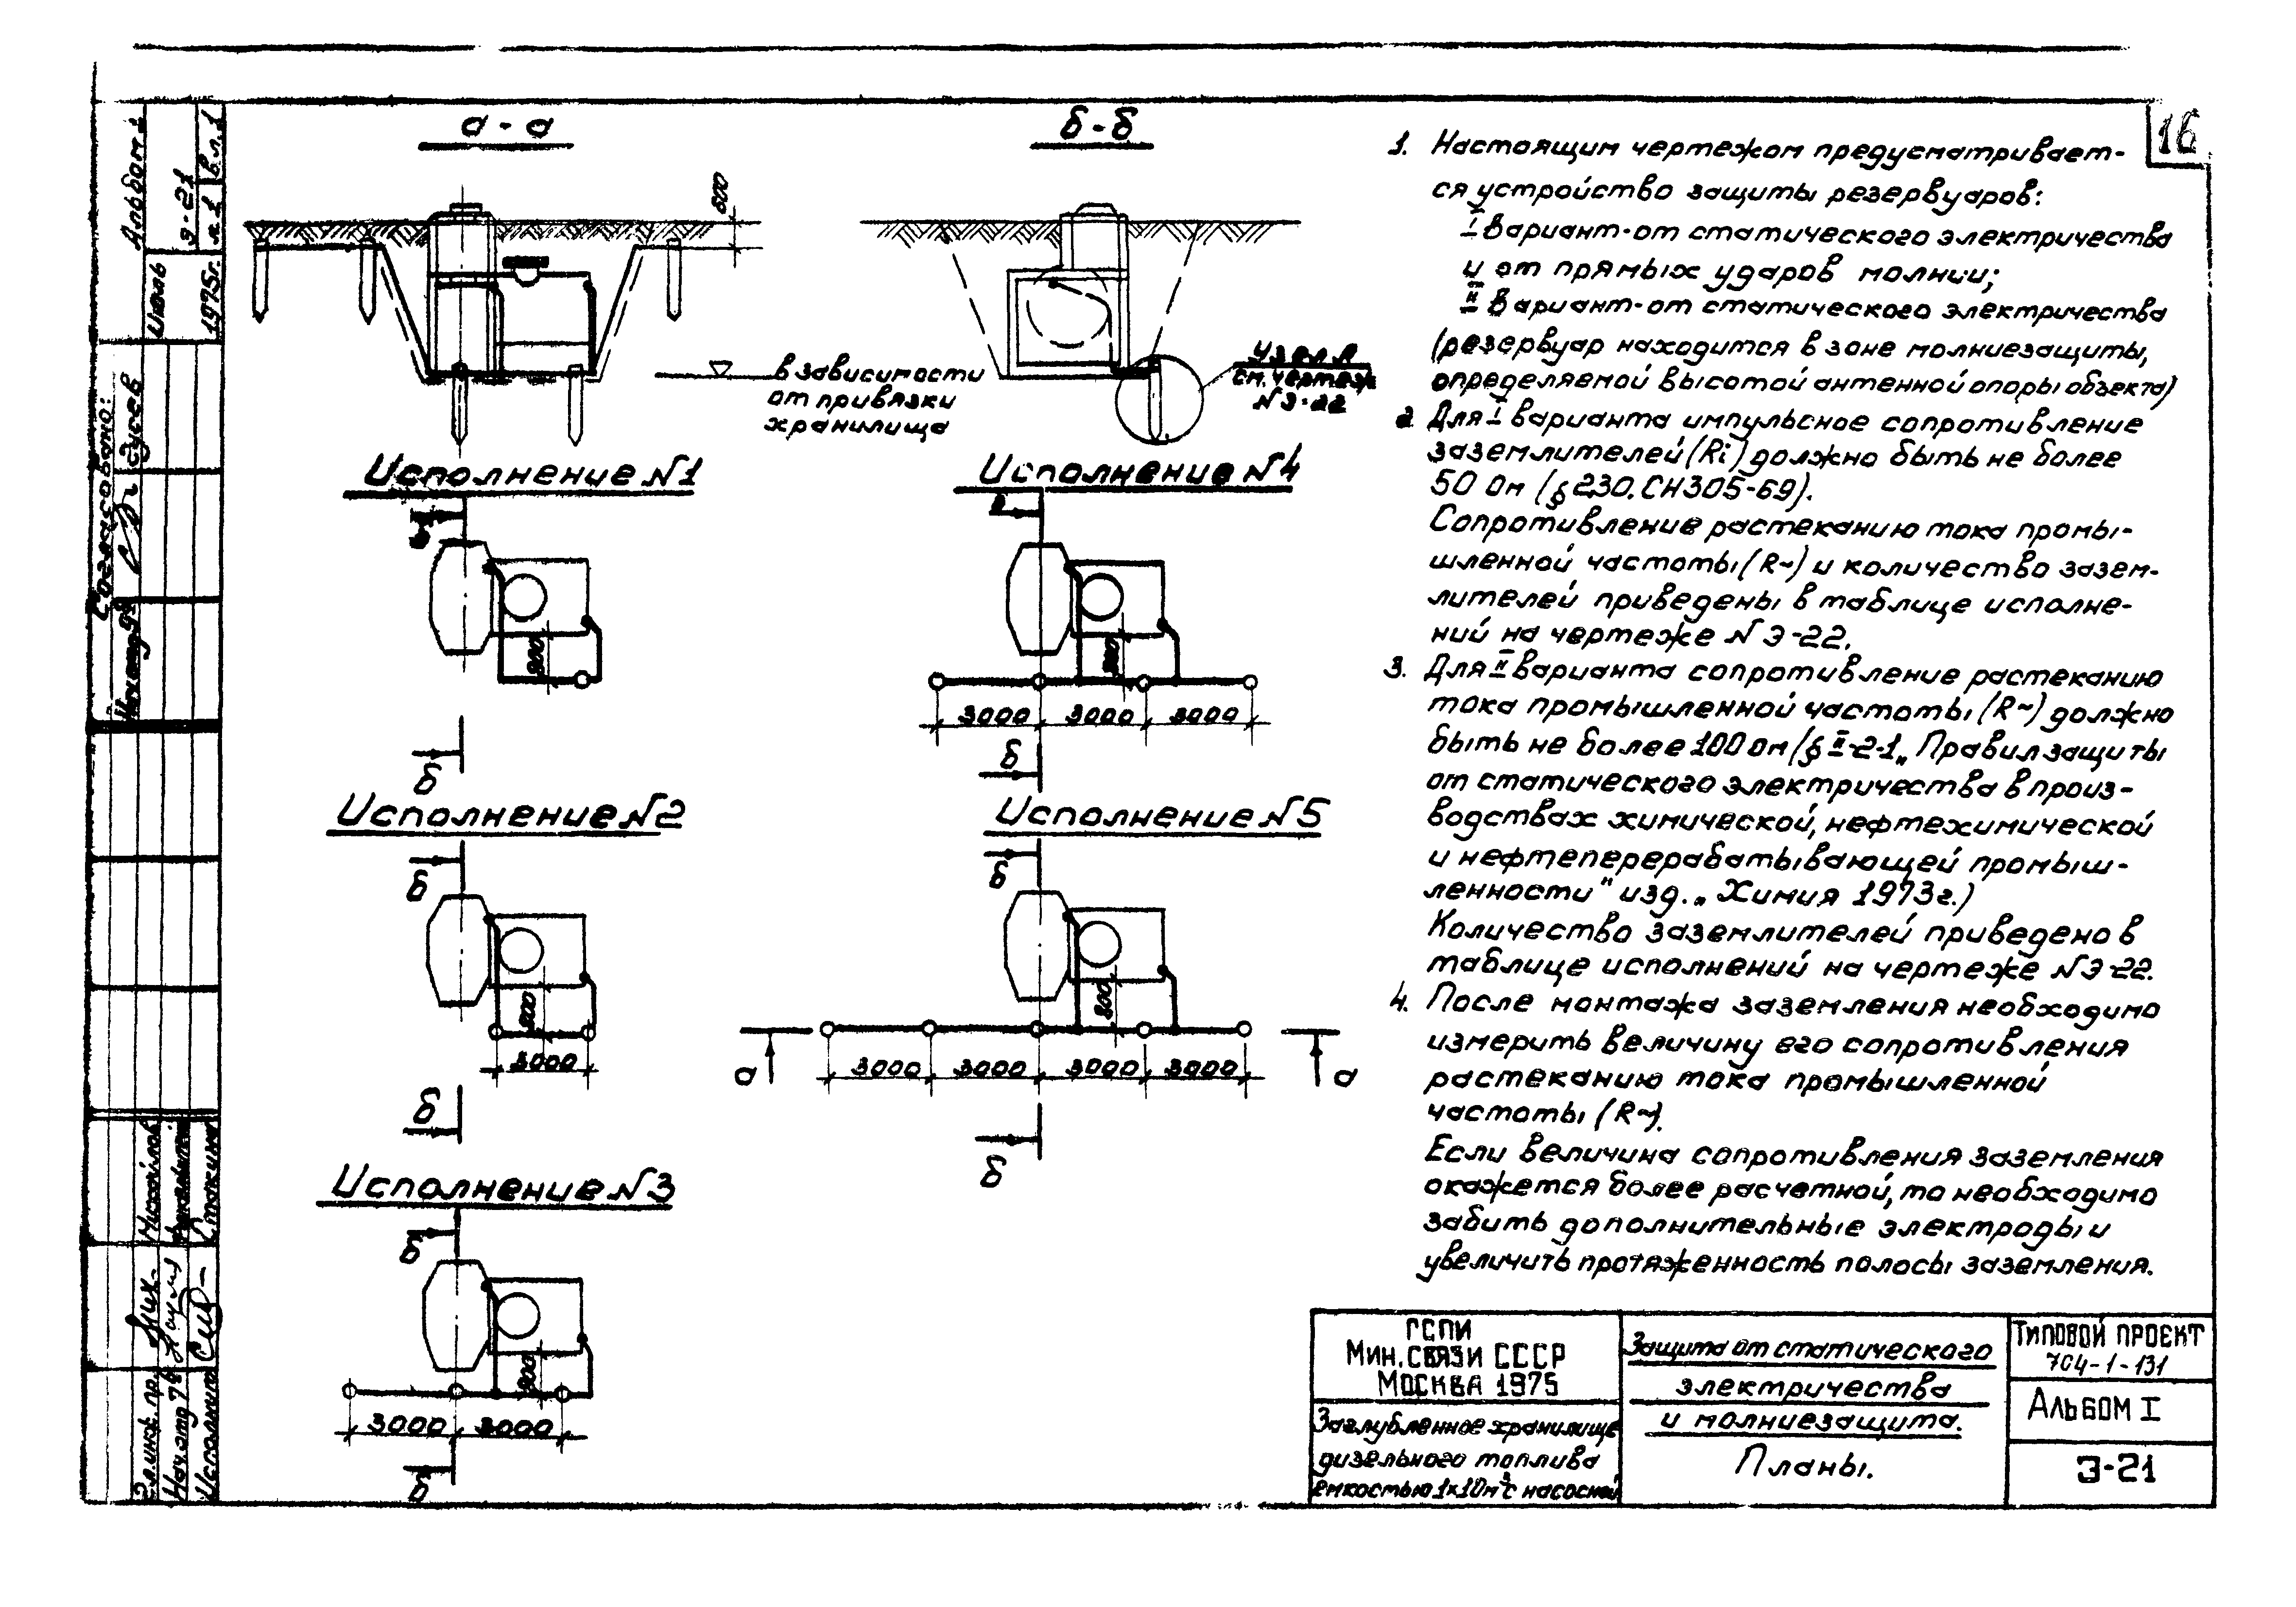 16
а - а
б - б
в зависимости
от привязки
хранилища
Узел А
см. чертеж
№ Э-22
Исполнение №1
б
800
б
Исполнение №2
б
800
3000
б
Исполнение №3
б
800
3000 3000
б
Исполнение №4
3000 3000 3000
б
Исполнение №5
б
800
а 3000 3000 3000 3000 а
б
1. Настоящим чертежом предусматривает-
ся устройство защиты резервуаров:
I вариант-от статического электричества
и от прямых ударов молнии;
II вариант-от статического электричества
(резервуар находится в зоне молниезащиты,
определяемой высотой антенной опоры объекта)
2. Для I варианта импульсное сопротивление
заземлителей (Ri) должно быть не более
50 Ом (§ 2.30. СН305-69).
Сопротивление растеканию тока промы-
шленной частоты (R~) и количество зазем-
лителей приведены в таблице исполне-
ний на чертеже № Э-22.
3. Для II варианта сопротивление растеканию
тока промышленной частоты (R~) должно
быть не более 100 Ом (§ II-2-1 „Правил защиты
от статического электричества в произ-
водствах химической, нефтехимической
и нефтеперерабатывающей промыш-
ленности" изд. „Химия 1973г.)
Количество заземлителей приведено в
таблице исполнений на чертеже № Э-22.
4. После монтажа заземления необходимо
измерить величину его сопротивления
растеканию тока промышленной
частоты (R~).
Если величина сопротивления заземления
окажется более расчетной, то необходимо
забить дополнительные электроды и
увеличить протяженность полосы заземления.
ГСПИ
Мин. связи СССР
Москва 1975
Заглубленное хранилище
дизельного топлива
емкостью 1x10м³ с насосной
Защита от статического
электричества
и молниезащита.
Планы.
Типовой проект
704-1-131
Альбом I
Э-21
Альбом 1
Э-21
л 1 в л. 1
Июль 1975г.
Согласовано:
Гусев
Михайлов
Стакина
Гл. инж. пр.
Нач. отд 78
Исполнит